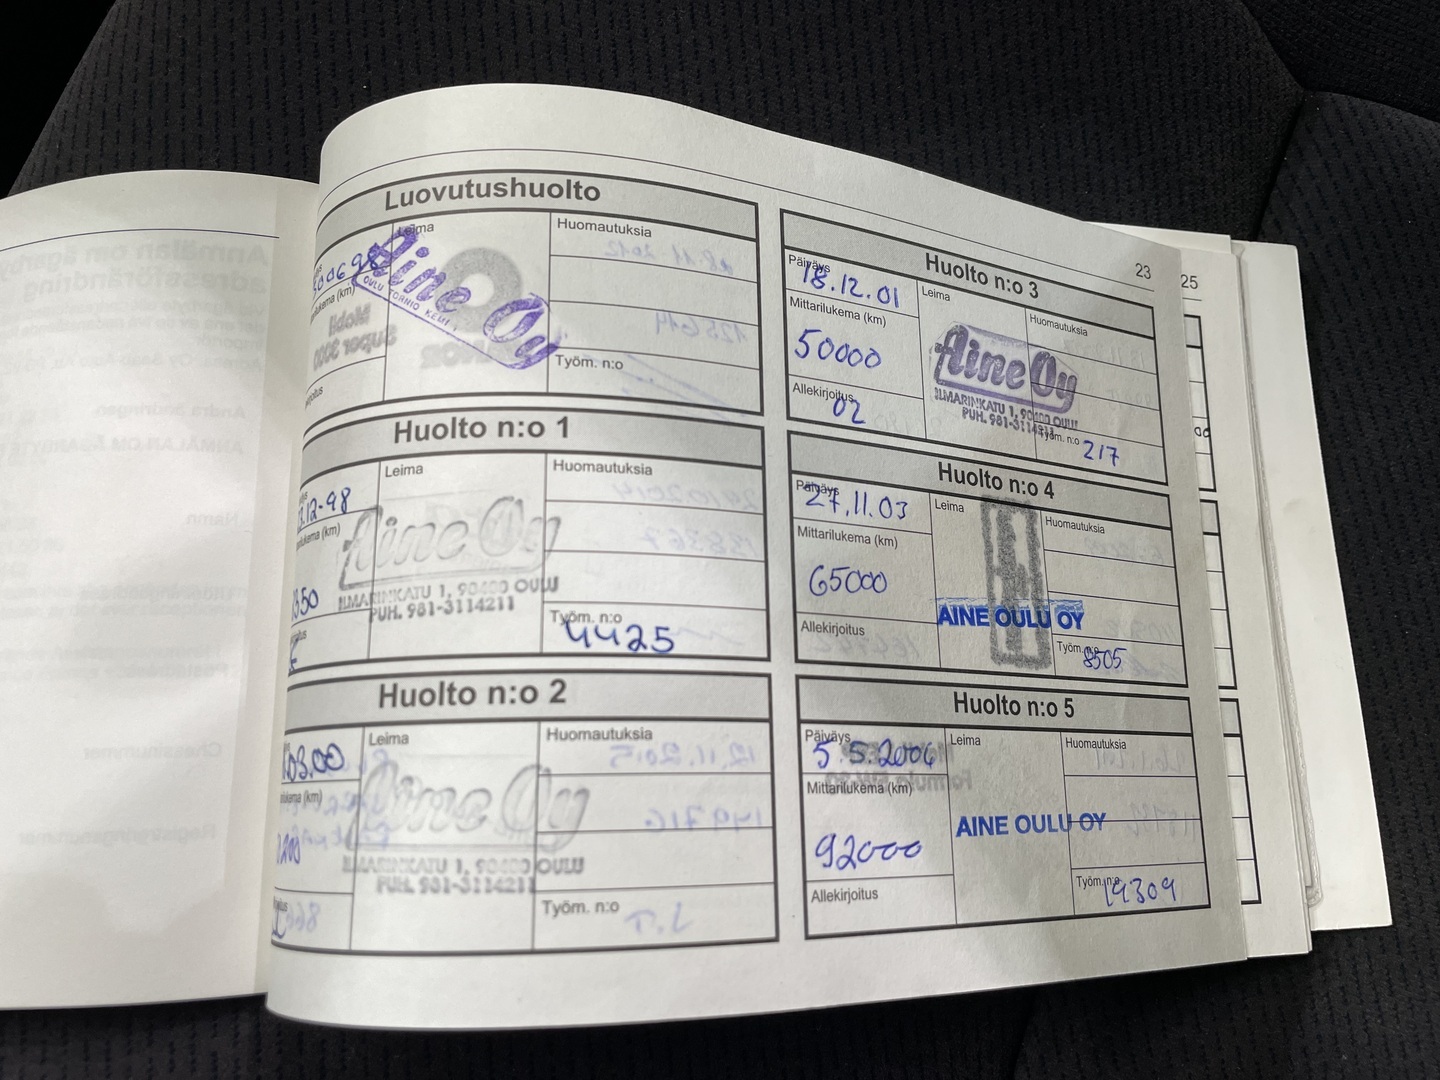 Luovutushuolto
Leima
Huomautuksia
Aine Oy
OULU TORNIO KEMI
Työm. n:o
Huolto n:o 1
Leima
Huomautuksia
12-98
Aine Oy
ILMARINKATU 1, 90400 OULU
PUH. 981-3114211
Työm. n:o
4425
Huolto n:o 2
Leima
Huomautuksia
03.00
Aine Oy
ILMARINKATU 1, 90400 OULU
PUH. 981-3114211
Työm. n:o
23
Huolto n:o 3
Päiväys
18.12.01
Leima
Huomautuksia
Mittarilukema (km)
50000
Aine Oy
ILMARINKATU 1, 90400 OULU
PUH. 981-3114211
Allekirjoitus
02
Työm. n:o
217
Huolto n:o 4
Päiväys
27.11.03
Leima
Huomautuksia
Mittarilukema (km)
65000
AINE OULU OY
Allekirjoitus
Työm. n:o
8505
Huolto n:o 5
Päiväys
5.5.2006
Leima
Huomautuksia
Mittarilukema (km)
92000
AINE OULU OY
Allekirjoitus
Työm. n:o
19309
25